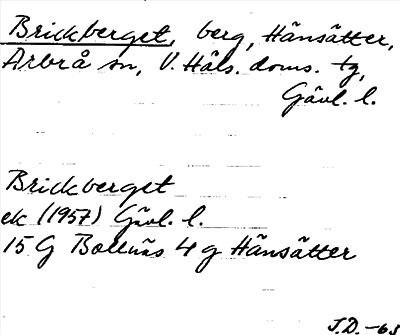 Brickberget, berg, Hänsätter,
Arbrå sn, V. Häls. doms. tg,
Gävl. l.
Brickberget
ek (1957) Gävl. l.
15 G Bollnäs 4 g Hänsätter
J.D. -63